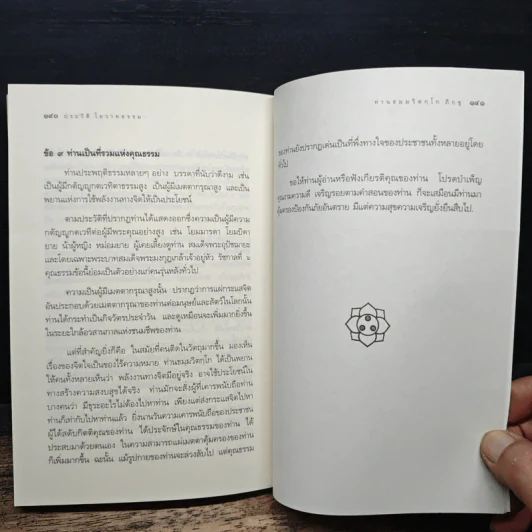 ๑๔๐ ประวัติ โอวาทธรรม
ข้อ ๙ ท่านเป็นที่รวมแห่งคุณธรรม
ท่านประพฤติธรรมหลายๆ อย่าง บรรดาที่นับว่าดีงาม เช่น
เป็นผู้มีกตัญญูกตเวทิตาธรรมสูง เป็นผู้มีเมตตากรุณาสูง และเป็น
พยานแห่งการใช้พลังงานทางจิตให้เป็นประโยชน์
ตามประวัติที่ปรากฏ ท่านได้แสดงออกซึ่งความเป็นผู้มีความ
กตัญญูกตเวทีต่อผู้มีพระคุณอย่างสูง เช่น โยมมารดา โยมบิดา
ยาย น้าผู้หญิง หม่อมยาย ผู้เคยเลี้ยงดูท่าน สมเด็จพระอุปัชฌายะ
และโดยเฉพาะพระบาทสมเด็จพระมงกุฎเกล้าเจ้าอยู่หัว รัชกาลที่ ๖
คุณธรรมข้อนี้ย่อมเป็นตัวอย่างแก่คนรุ่นหลังทั่วไป
ความเป็นผู้มีเมตตากรุณาสูงนั้น ปรากฏว่าการแผ่กระแสจิต
อันประกอบด้วยเมตตากรุณาของท่านต่อมนุษย์และสัตว์ในโลกนั้น
ท่านได้กระทำเป็นกิจวัตรประจำวัน และดูเหมือนจะเพิ่มมากยิ่งขึ้น
ในระยะใกล้อวสานกาลแห่งชนมชีพของท่าน
แต่ที่สำคัญยิ่งก็คือ ในสมัยที่คนติดในวัตถุมากขึ้น มองเห็น
เรื่องของจิตใจเป็นของไร้ความหมาย ท่านธมฺมวิตกฺโก ได้เป็นพยาน
ให้คนทั้งหลายเห็นว่า พลังงานทางจิตมีอยู่จริง อาจใช้ประโยชน์ใน
ทางสร้างความสงบสุขได้จริง ท่านมักจะสั่งผู้ที่เคารพนับถือท่าน
บางคนว่า มีธุระอะไรไม่ต้องไปหาท่าน เพียงแต่ส่งกระแสจิตไปหา
ท่านก็เท่ากับไปหาท่านแล้ว ยิ่งนานวันความเคารพนับถือของประชาชน
ผู้ได้สดับกิตติคุณของท่าน ได้ประจักษ์ในคุณธรรมของท่าน ได้
ประสบมาด้วยตนเอง ในความสามารถแผ่เมตตาคุ้มครองของท่าน
ก็เพิ่มมากขึ้น ฉะนั้น แม้รูปกายของท่านจะล่วงลับไป แต่คุณธรรม
ท่านธมฺมวิตกฺโก ภิกขุ ๑๔๑
ของท่านยังปรากฏเด่นเป็นที่พึ่งทางใจของประชาชนทั้งหลายอยู่โดย
ทั่วไป
ขอให้ท่านผู้อ่านหรือฟังเกียรติคุณของท่าน โปรดบำเพ็ญ
คุณงามความดี เจริญรอยตามคำสอนของท่าน ก็จะเสมือนมีท่านมา
คุ้มครองป้องกันภัยอันตราย มีแต่ความสุขความเจริญยั่งยืนสืบไป.